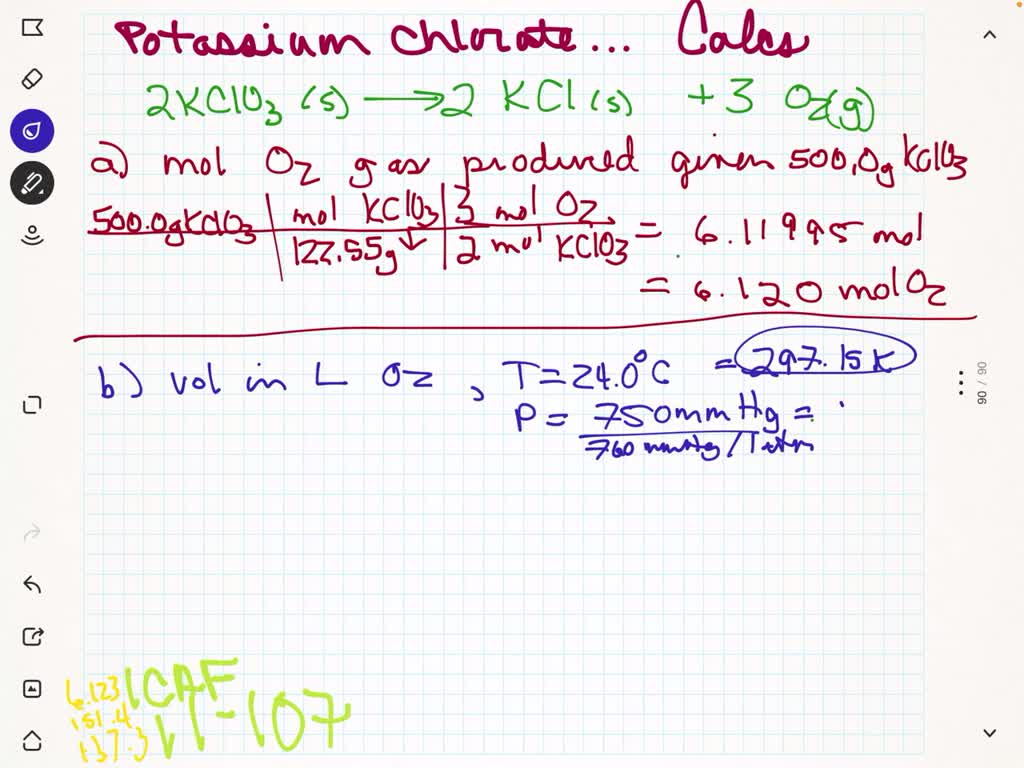 Potassium Chlorate... Calcs
2KClO3 (s) → 2 KCl (s) + 3 O2(g)
a) mol O2 gas produced given 500.0g KClO3
500.0g KClO3 | mol KClO3 | 3 mol O2
122.55g | 2 mol KClO3 = 6.11995 mol
= 6.120 mol O2
b) vol in L O2, T = 24.0°C = 297.15 K
P = 750 mm Hg =
760 mmHg / 1 atm
90 / 90
6.123
151.4
137.3
ICAF
11-107